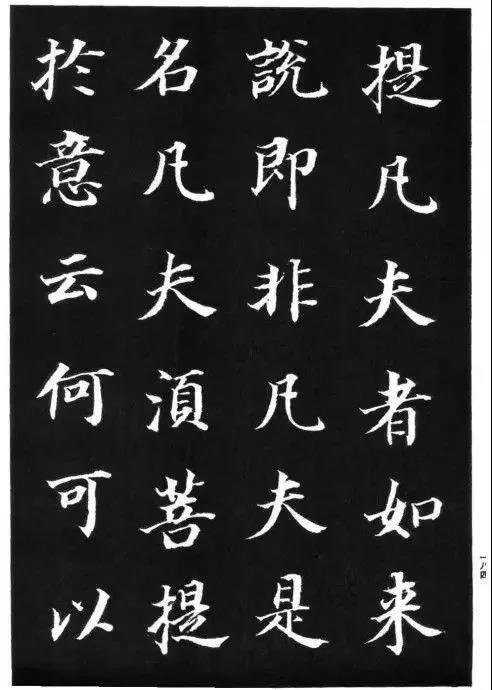 提凡夫者如来
說即非凡夫是
名凡夫湏菩提
扵意云何可以
一八四